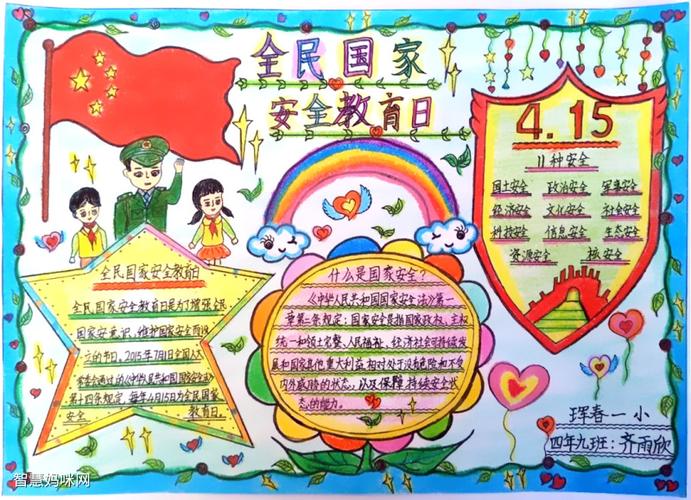 全民国家
安全教育日
4.15
11种安全
国土安全 政治安全 军事安全
经济安全 文化安全 社会安全
科技安全 信息安全 生态安全
资源安全 核安全
全民国家安全教育日
全民国家安全教育日是为了增强全民
国家安意识,维护国家安全而设
立的节日。2015年7月1日全国人大
常委会通过的《中华人民共和国国家安全法》
第十四条规定,每年4月15日为全民国家
安全教育日。
什么是国家安全?
《中华人民共和国国家安全法》第一
章第二条规定:国家安全是指国家政权、主权
统一和领土完整、人民福祉、经济社会可持续发
展和国家其他重大利益相对处于没有危险和不受
内外威胁的状态,以及保障持续安全状
态的能力。
珲春一小
四年九班:齐雨欣
智慧妈咪网